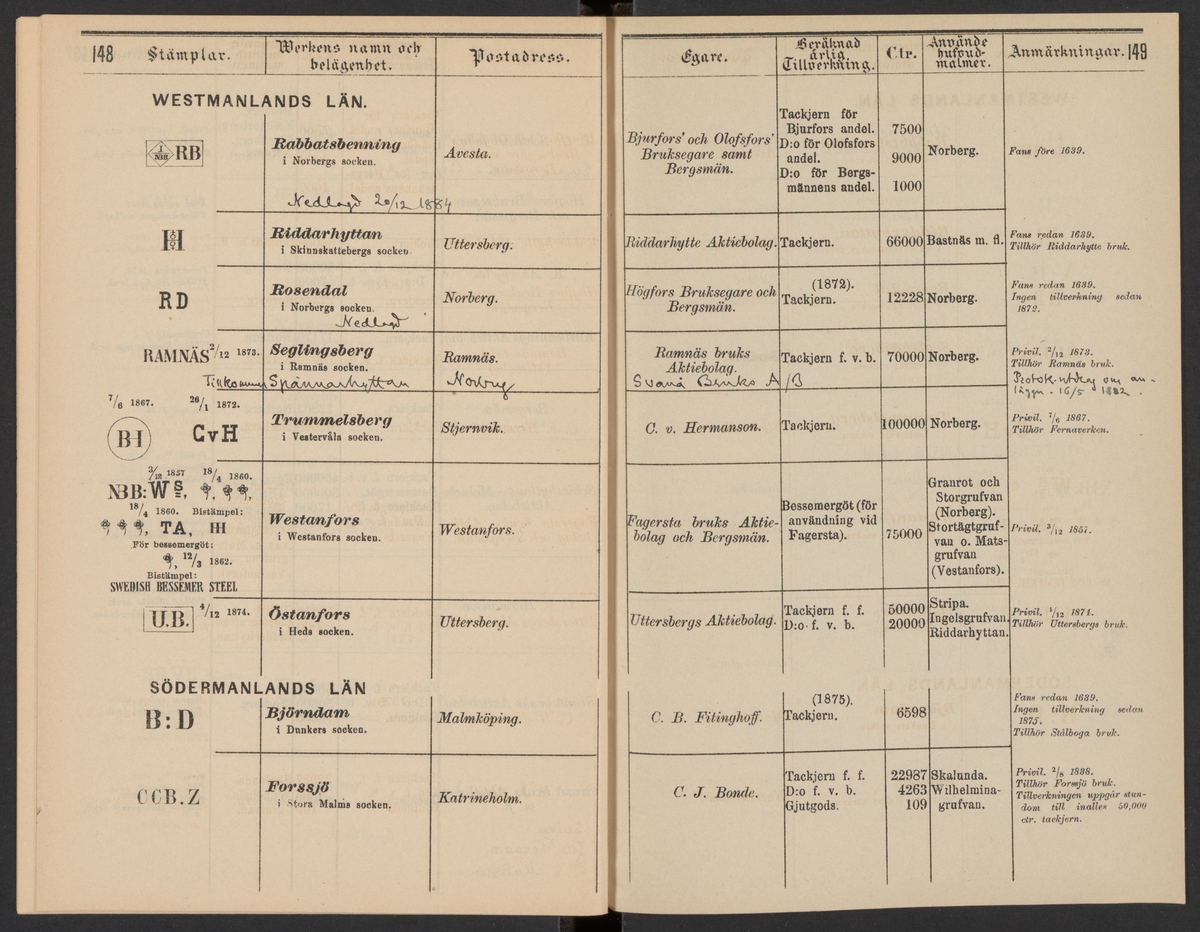 148
Stämplar.
Werkens namn och
belägenhet.
Postadress.
WESTMANLANDS LÄN.
RB
Rabbatsbenning
i Norbergs socken.
Avesta.
Nedlagd 20/12 1884
H
Riddarhyttan
i Skinnskattebergs socken
Uttersberg.
RD
Rosendal
i Norbergs socken.
Norberg.
Nedlagd
RAMNÄS 2/12 1873.
Seglingsberg
i Ramnäs socken.
Ramnäs.
Tillkommer Spännarhyttan
Norberg
7/6 1867. 26/1 1872.
BH CvH
Trummelsberg
i Vestervåla socken.
Stjernvik.
3/12 1857 18/4 1860.
NBB:WS,
18/4 1860. Bistämpel:
TA, HH
För bessemergöt:
12/3 1862.
Bistämpel:
SWEDISH BESSEMER STEEL
Westanfors
i Westanfors socken.
Westanfors.
U.B. 4/12 1874.
Östanfors
i Heds socken.
Uttersberg.
SÖDERMANLANDS LÄN
B:D
Björndam
i Dunkers socken.
Malmköping.
CCB.Z
Forssjö
i Stora Malms socken.
Katrineholm.
Egare.
Beräknad
årlig
Tillverkning.
Ctr.
Använde
hufvud-
malmer.
Anmärkningar.
149
Bjurfors' och Olofsfors'
Bruksegare samt
Bergsmän.
Tackjern för
Bjurfors andel.
7500
D:o för Olofsfors
andel.
9000
D:o för Bergs-
männens andel.
1000
Norberg.
Fans före 1639.
Riddarhytte Aktiebolag.
Tackjern.
66000
Bastnäs m. fl.
Fans redan 1639.
Tillhör Riddarhytte bruk.
Högfors Bruksegare och
Bergsmän.
(1872).
Tackjern.
12228
Norberg.
Fans redan 1639.
Ingen tillverkning sedan
1872.
Ramnäs bruks
Aktiebolag.
Tackjern f. v. b.
70000
Norberg.
Privil. 2/12 1873.
Tillhör Ramnäs bruk.
Svanå Bruks A/B
Protok. utdrag om an-
läggn. 16/5 1882.
C. v. Hermanson.
Tackjern.
100000
Norberg.
Privil. 7/6 1867.
Tillhör Fernaverken.
Fagersta bruks Aktie-
bolag och Bergsmän.
Bessemergöt (för
användning vid
Fagersta).
75000
Granrot och
Storgrufvan
(Norberg).
Stortägtgruf-
van o. Mats-
grufvan
(Vestanfors).
Privil. 3/12 1857.
Uttersbergs Aktiebolag.
Tackjern f. f.
50000
D:o f. v. b.
20000
Stripa.
Ingelsgrufvan.
Riddarhyttan.
Privil. 4/12 1874.
Tillhör Uttersbergs bruk.
C. B. Fitinghoff.
(1875).
Tackjern.
6598
Fans redan 1639.
Ingen tillverkning sedan
1875.
Tillhör Stålboga bruk.
C. J. Bonde.
Tackjern f. f.
22987
D:o f. v. b.
4263
Gjutgods.
109
Skalunda.
Wilhelmina-
grufvan.
Privil. 2/8 1838.
Tillhör Forssjö bruk.
Tillverkningen uppgår stun-
dom till inalles 50,000
ctr. tackjern.